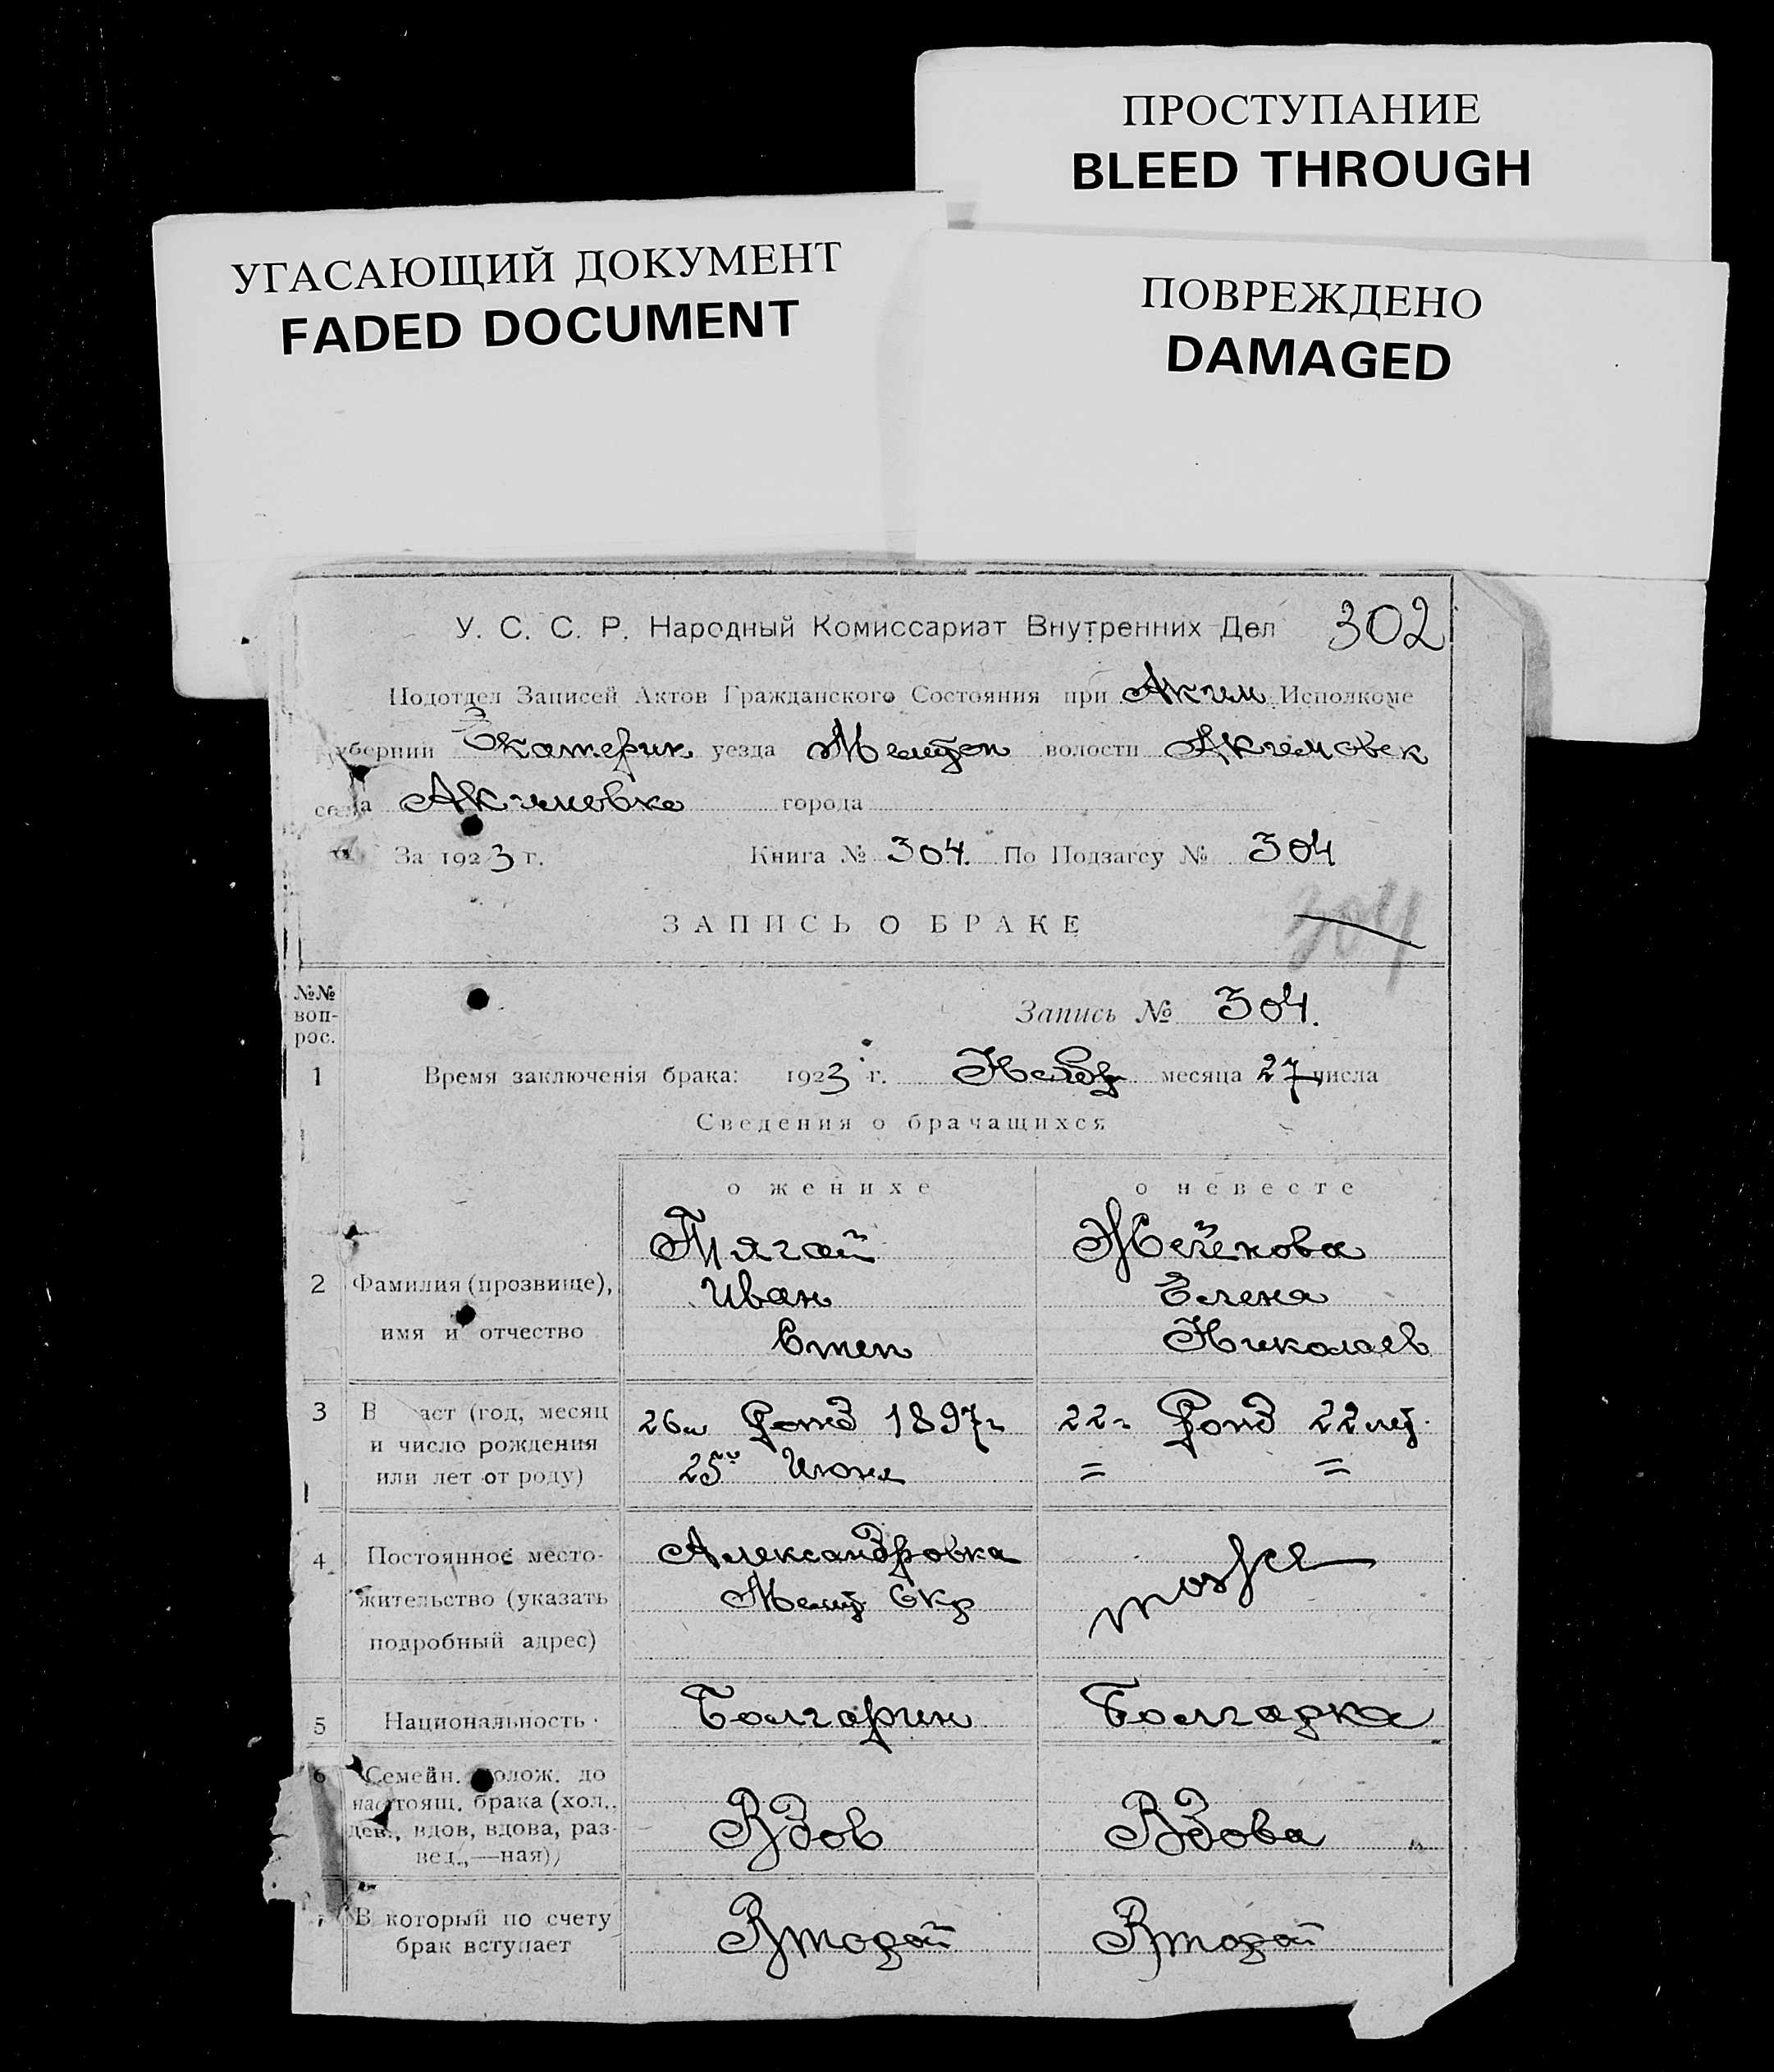 ПРОСТУПАНИЕ
BLEED THROUGH
УГАСАЮЩИЙ ДОКУМЕНТ
FADED DOCUMENT
ПОВРЕЖДЕНО
DAMAGED
У. С. С. Р. Народный Комиссариат Внутренних Дел 302
Подотдел Записей Актов Гражданского Состояния при Аким Исполкоме
губернии Екатерин уезда Мелитоп волости Акимовск
села Акимовка города
За 1923 г. Книга № 304. По Подзагсу № 304
ЗАПИСЬ О БРАКЕ 304
№№ воп-
рос.
Запись № 304.
1 Время заключенія брака: 1923 г. Ноябр месяца 27 числа
Сведения о брачащихся
о женихе о невесте
Тягай
Иван Елена
2 Фамилия (прозвище),
имя и отчество
Степ Николаев
3 В аст (год, месяц
и число рождения
или лет от роду)
26 рожд 1897 г 22 рожд 22 лет
25го Июня = =
4 Постоянное место-
жительство (указать
подробный адрес)
Александровка
Мелит Окр
тоже
5 Национальность Болгарин Болгарка
6 Семейн. полож. до
настоящ. брака (хол.,
дев., вдов, вдова, раз-
вед.,—ная)
Вдов Вдова
7 В который по счету
брак вступает
Второй Второй